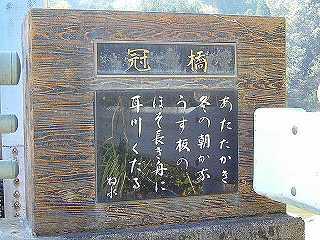 冠橋
あたたかき
冬の朝かな
うす板の
ほそ長き舟に
耳川くだる
牧水